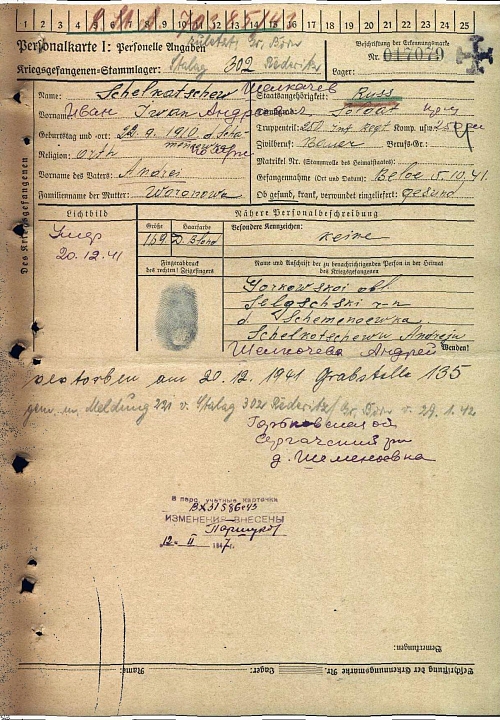 1 2 3 4 5 6 7 8 9 10 11 12 13 14 15 16 17 18 19 20 21 22 23 24 25
Personalkarte I: Personelle Angaben
Beschriftung der Erkennungsmarke
Nr. 017079
Kriegsgefangenen-Stammlager: Stalag 302 Rederitz
Lager:
Des Kriegsgefangenen
Name: Schelkatschew Шелкачев
Staatsangehörigkeit: Russ
Vorname: Иван Iwan Андреевич
Soldat
Geburtstag und -ort: 22.9.1910
Truppenteil: 250 Inf. Regt Komp. usw.:
Religion: orth
Zivilberuf: Bauer Berufs-Gr.:
Matrikel Nr. (Stammrolle des Heimatstaates):
Vorname des Vaters: Andrei
Gefangennahme (Ort und Datum): Beloe 5.10.41.
Familienname der Mutter: Woronowa
Ob gesund, krank, verwundet eingeliefert: gesund
Lichtbild
Nähere Personalbeschreibung
Größe Haarfarbe Besondere Kennzeichen:
Умер
169 D. Blond keine
20.12.41
Fingerabdruck
des rechten! Zeigefingers
Name und Anschrift der zu benachrichtigenden Person in der Heimat
des Kriegsgefangenen
Gorkowskoi obl.
d Schemenoewka
Schelkotschewu Andreju
Шелкачева Андрей Wenden!
verstorben am 20.12.1941 Grabstelle 135
gem. Meldung 221 v. Stalag 302 Rederitz/Gr. Born v. 29.1.42
Горьковской об
Сергачский рн
д. Шеменоевка
В перс. учетные карточки
ИЗМЕНЕНИЯ ВНЕСЕНЫ
12. II 1947г.
Bemerkungen:
Beschriftung der Erkennungsmarke Nr. Lager: Name: